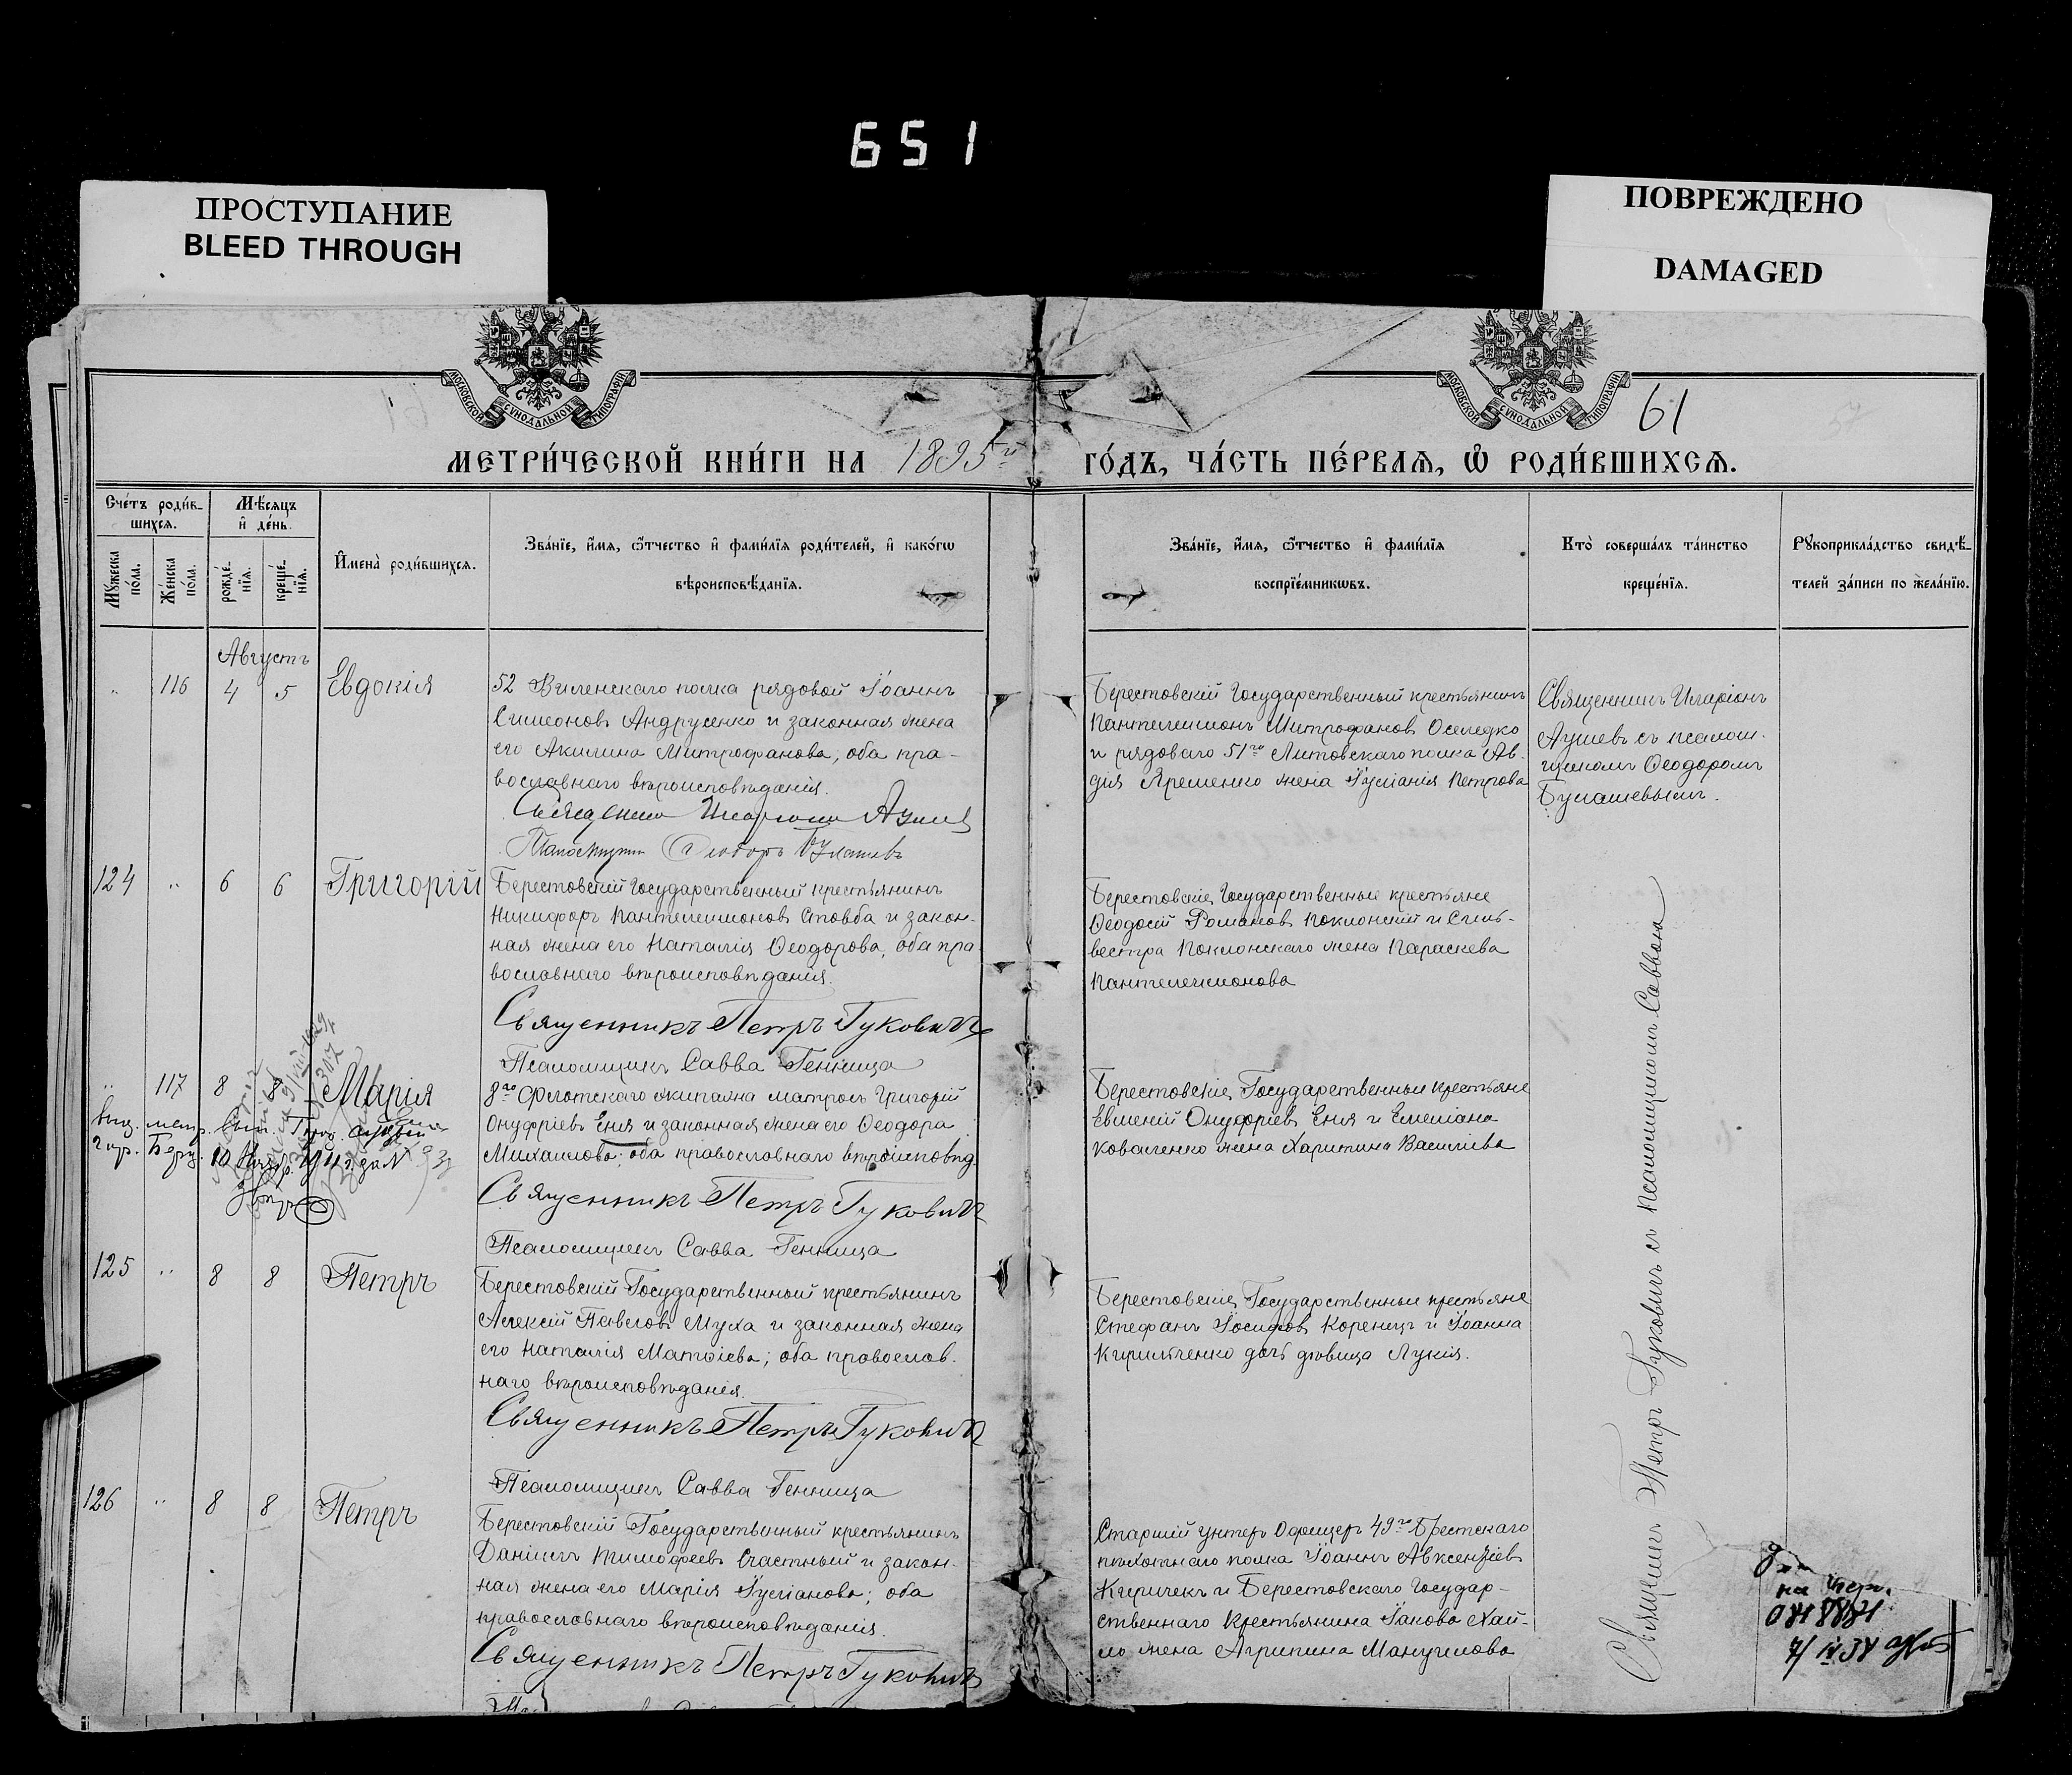 651
ПРОСТУПАНИЕ
BLEED THROUGH
ПОВРЕЖДЕНО
DAMAGED
МОСКОВСКОЙ СѴНОДАЛЬНОЙ ТИПОГРАФІИ
МОСКОВСКОЙ СѴНОДАЛЬНОЙ ТИПОГРАФІИ
61
МЕТРИ́ЧЕСКОЙ КНИ́ГИ НА 1895й ГО́ДЪ, ЧА́СТЬ ПЕ́РВАЯ, Ѽ РОДИ́ВШИХСЯ.
Сче́тъ роди́в-
шихся.
Мѣ́сяцъ
и҆ де́нь.
Мꙋ́жеска по́ла.
Же́нска по́ла.
рожде́-нїя.
креще́-нїя.
И҆мена̀ роди́вшихся.
Зва́нїе, и҆́мя, ѻ҆́тчество и҆ фами́лїя роди́телей, и҆ како́гѡ
вѣроисповѣ́данїя.
Зва́нїе, и҆́мя, ѻ҆́тчество и҆ фами́лїя
воспрїе́мникѡвъ.
Кто̀ соверша́лъ та́инство
креще́нїя.
Рꙋкоприкла́дство свидѣ́-
телей за́писи по жела́нїю.
Августъ
" 116 4 5 Евдокія
52 Виленскаго полка рядовой Іоаннъ
Симеоновъ Андрусенко и законная жена
его Акилина Митрофанова, оба пра-
вославнаго вѣроисповѣданія.
Священникъ Иларіонъ Ауш
Псаломщикъ Ѳеодоръ Букашевъ
Берестовскій Государственный крестьянинъ
Пантелеимонъ Митрофановъ Оселедко
и рядоваго 51го Литовскаго полка Ав-
дія Яременко жена Іуліанія Петрова
Священникъ Иларіонъ
Аушевъ съ псалом-
щикомъ Ѳеодоромъ
Букашевымъ.
124 " 6 6 Григорій
Берестовскій Государственный крестьянинъ
Никифоръ Пантелеимоновъ Стовба и закон-
ная жена его Наталія Ѳеодорова, оба пра-
вославнаго вѣроисповѣданія.
Священникъ Петръ Гуковичъ
Псаломщикъ Савва Геннища
Берестовскіе Государственные крестьяне
Ѳеодосій Романовъ Поклонскій и Силь-
вестра Поклонскаго жена Параскева
Пантелеимонова
" 117 8 8 Марія
8го Флотскаго экипажа матросъ Григорій
Онуфріевъ Еня и законная жена его Ѳеодора
Михаилова; оба православнаго вѣроисповѣд.
Священникъ Петръ Гуковичъ
Псаломщикъ Савва Геннища
Берестовскіе Государственные крестьяне
Евменій Онуфріевъ Еня и Емеліана
Коваленко жена Харитина Василіева
125 " 8 8 Петръ
Берестовскій Государственный крестьянинъ
Алексій Павловъ Муха и законная жена
его Наталія Матѳіева; оба православ-
наго вѣроисповѣданія.
Священникъ Петръ Гуковичъ
Псаломщикъ Савва Геннища
Берестовскіе Государственные крестьяне
Стефанъ Іосифовъ Коренецъ и Іоанна
Кирильченко дочь дѣвица Лукія.
126 " 8 8 Петръ
Берестовскій Государственный крестьянинъ
Даніилъ Тимофеевъ Счастный и закон-
ная жена его Марія Іуліанова; оба
православнаго вѣроисповѣданія.
Священникъ Петръ Гуковичъ
Старшій унтеръ офицеръ 49го Брестскаго
пѣхотнаго полка Іоаннъ Авксентіевъ
Киричекъ и Берестовскаго Государ-
ственнаго крестьянина Іакова Хай-
ло жена Агрипина Мануилова
Священникъ Петръ Гуковичъ съ Псаломщикомъ Саввою